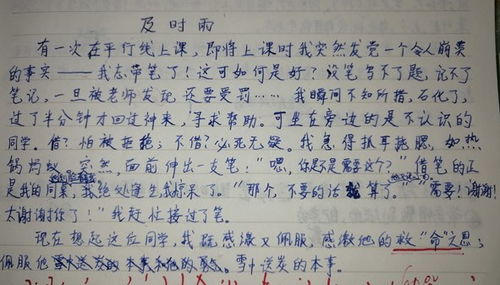 及时雨
有一次在平行线上课，即将上课时我突然发觉一个令人崩溃
的事实——我忘带笔了！这可如何是好？没笔写不了题，记不了
笔记，一旦被老师发现还要受罚……我瞬间不知所措，石化了，
过了半分钟才回过神来，寻求帮助。可坐在旁边的是不认识的
同学。借？怕被拒绝；不借？必死无疑。我急得抓耳挠腮，如热
锅蚂蚁。突然，面前伸出一支笔！“嗯，你是不是需要这个？”借笔的正
是我的同桌，我绝处逢生 “那个，不要的话就算了。” 需要！谢谢！
太谢谢你了！”我赶忙接过了笔。
现在想起这位同学，我既感激又佩服，感激他的救“命”之恩；
佩服他 雪中送炭的本事。